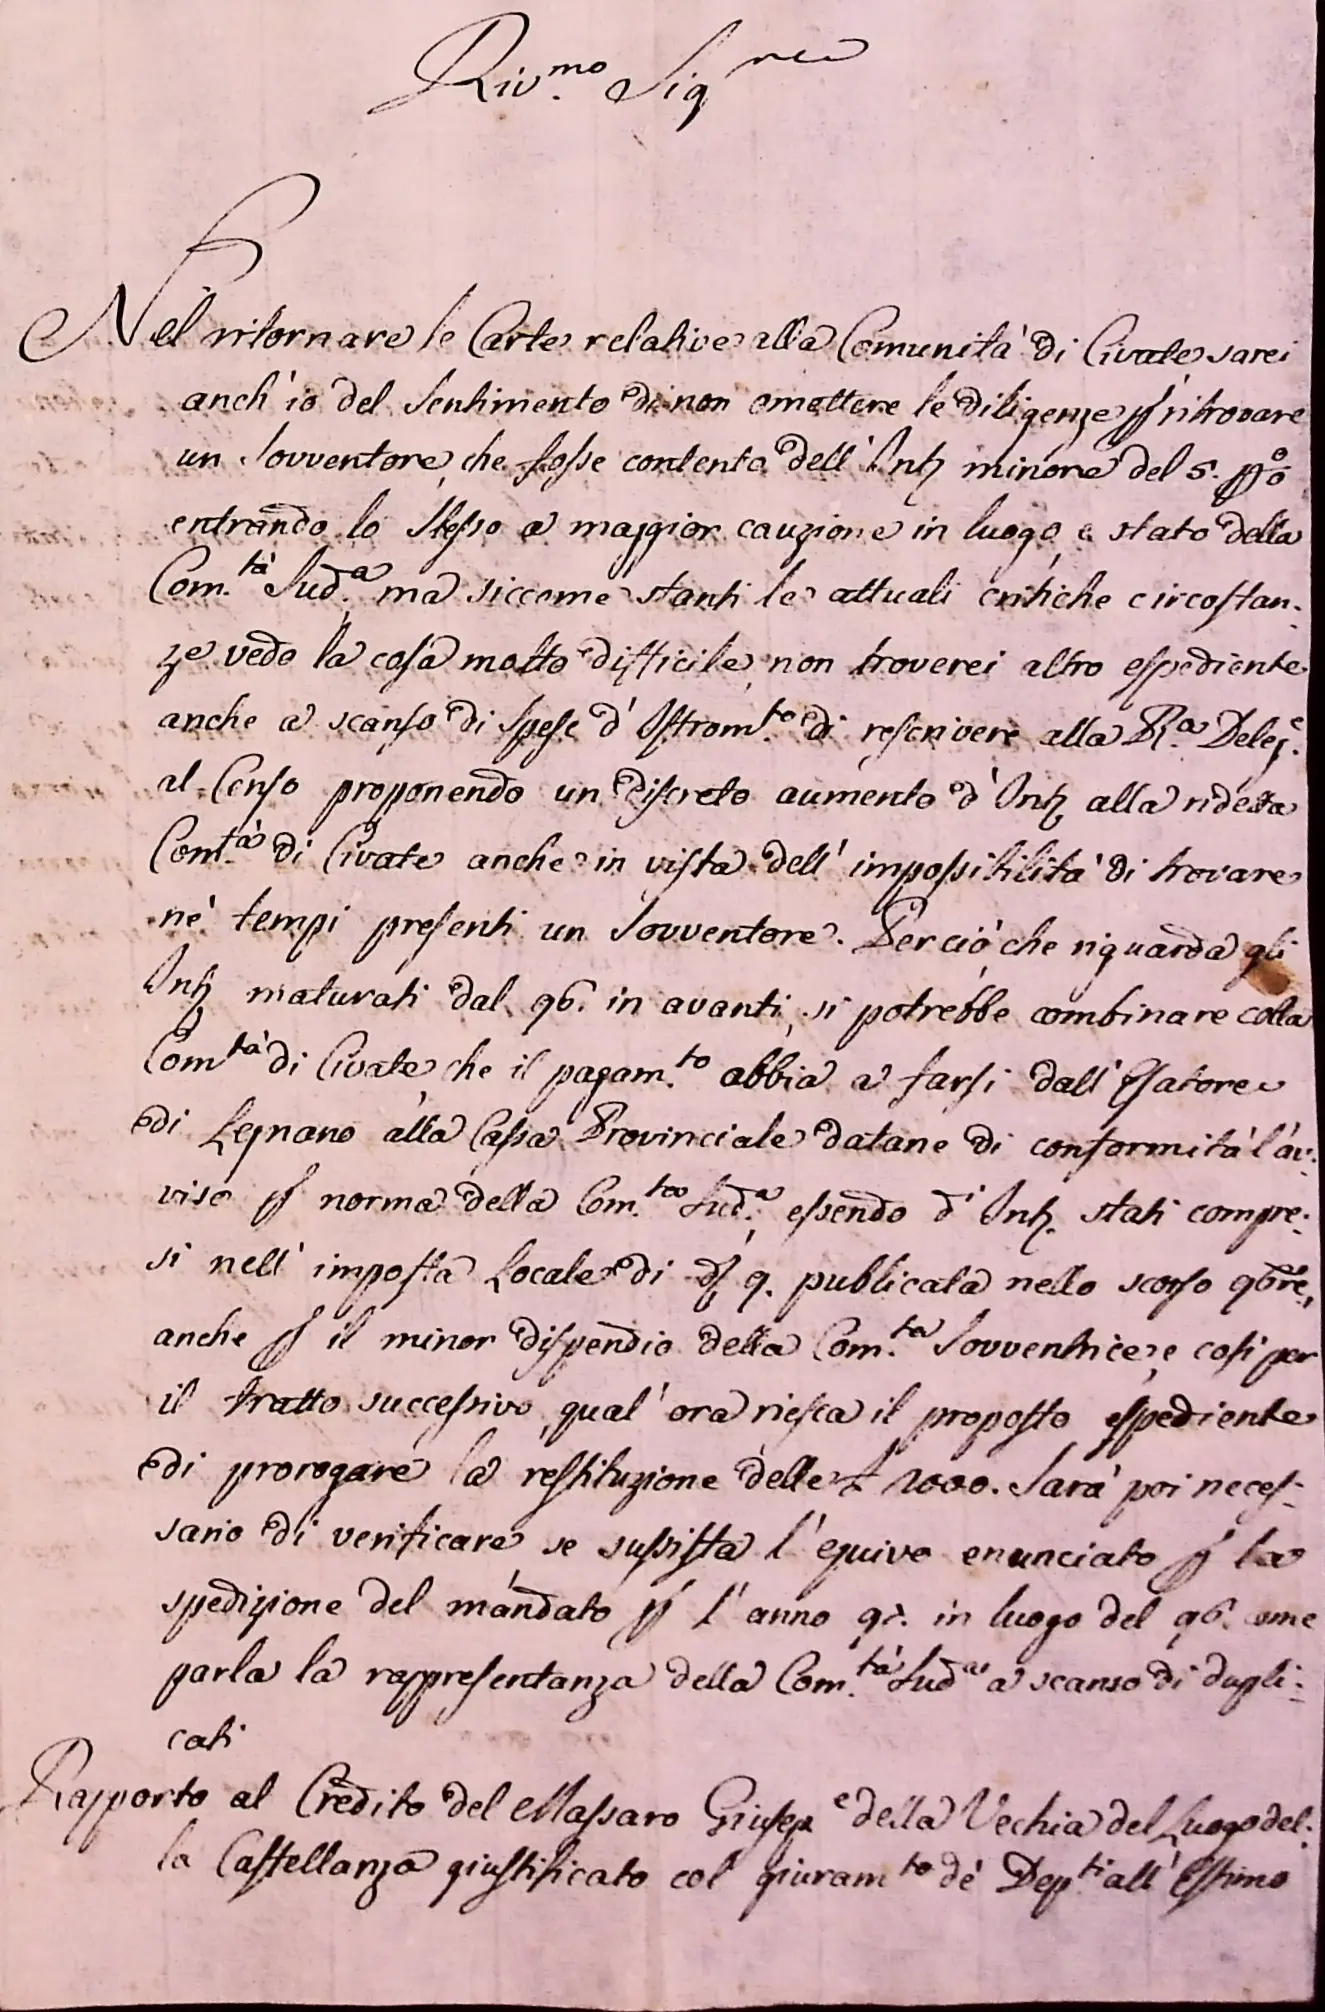 Riv.mo Sig.re
Nel ritornare le Carte relative alla Comunità di Civate sarei
anch'io del Sentimento di non omettere le diligenze p ritrovare
un Sovventore che fosse contento dell'Inti minore del 5. pCto
entrando lo Stesso a maggior cauzione in luogo, e stato della
Com.tà Sud.a, ma siccome stanti le attuali critiche circostan:
ze vedo la cosa molto difficile, non troverei altro espediente
anche a scanso di Spese d'Istrom.to di rescrivere alla R.a Deleg.e
al Censo proponendo un discreto aumento d'Inti alla ridetta
Com.tà di Civate anche in vista dell'impossibilità di trovare
né tempi presenti un Sovventore. Per ciò che riguarda gli
Inti maturati dal 96. in avanti, si potrebbe combinare colla
Com.tà di Civate, che il pagam.to abbia a farsi dall'Esatore
di Legnano alla Cassa Provinciale datane di conformità l'av:
viso p norma della Com.tà Sud.a, essendo d.i Inti. stati compre:
si nell'imposta Locale di 9. publicata nello scorso 9bre,
anche p il minor dispendio della Com.tà Sovventrice, e così per
il tratto successivo, qual'ora riesca il proposto espediente
di prorogare la restituzione delle £ 2000. Sarà poi neces:
sario di verificare se sussista l'equivo enunciato p la
spedizione del mandato p l'anno 97. in luogo del 96. come
parla la rappresentanza della Com.tà Sud.a a scanso di dupli:
cati
Rapporto al Credito del Massaro Giusep.e della Vechia del Luogo del:
la Castellanza giustificato col giuram.to dé Dep.ti all'Estimo